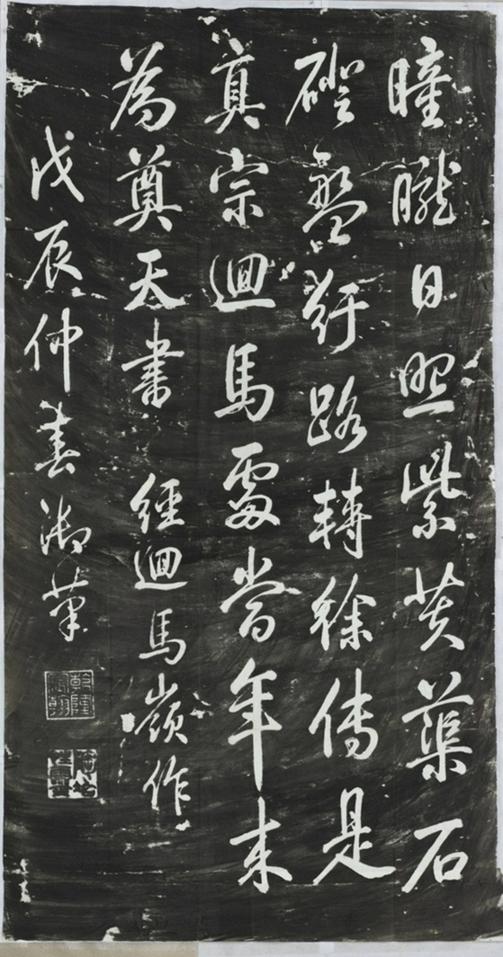 曈曨日照紫芙蕖石
磴盤紆路轉徐傳是
真宗迴馬處當年來
為奠天書 經迴馬嶺作
戊辰仲春御筆
乾隆宸翰